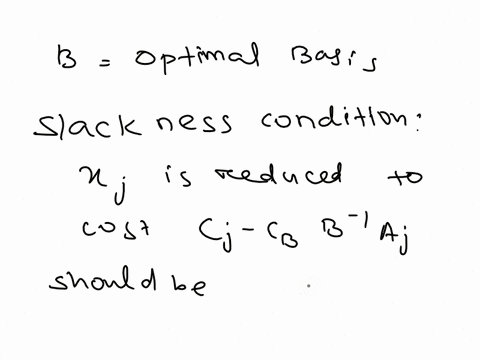 B = Optimal Basis
Slackness condition:
x_j is reduced to
cost C_j - C_B B^{-1} A_j
should be